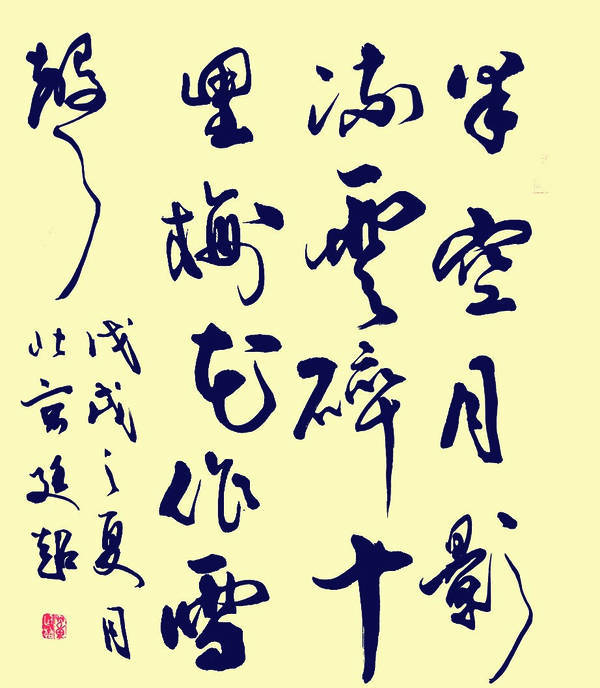 半空月影
流雲碎十
里梅花作雪
聲
戊戌之夏月
北京廷超